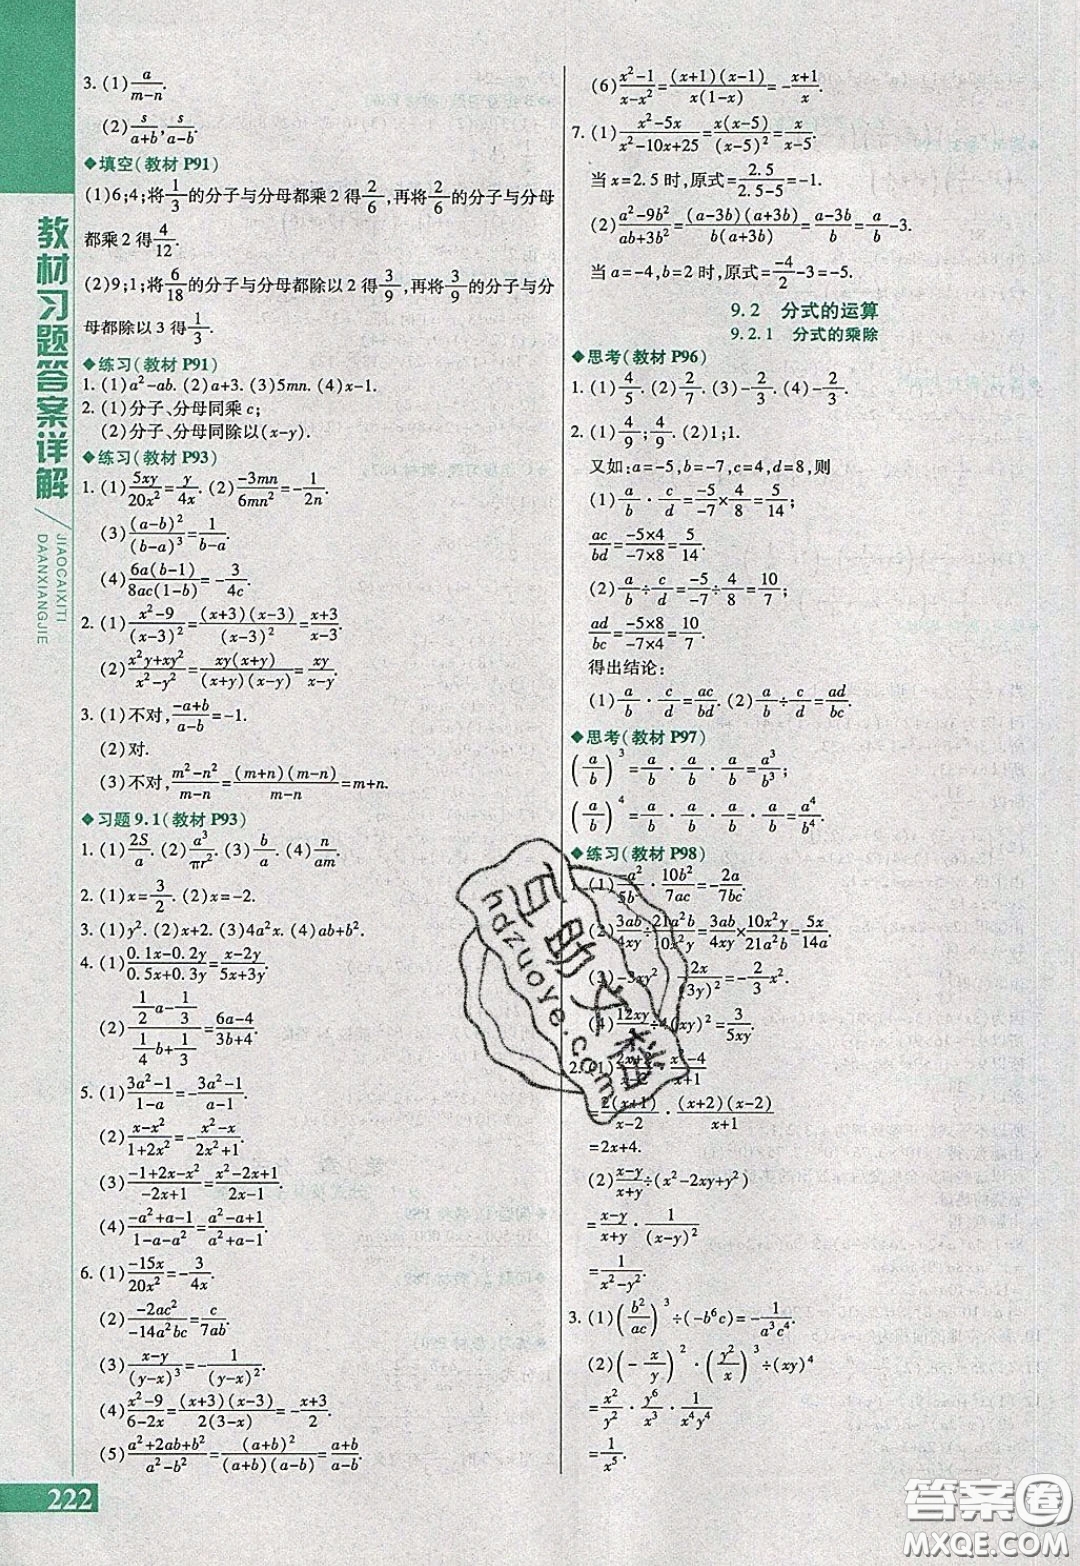 教材习题答案详解
JIAOCAIXITI
DAANXIANGJIE
3. (1) a/(m-n).
(2) s/(a+b), s/(a-b).
◆填空(教材 P91)
(1)6;4;将 1/3 的分子与分母都乘 2 得 2/6,再将 2/6 的分子与分母
都乘 2 得 4/12.
(2)9;1;将 6/18 的分子与分母都除以 2 得 3/9,再将 3/9 的分子与分
母都除以 3 得 1/3.
◆练习(教材 P91)
1. (1)a²-ab. (2)a+3. (3)5mn. (4)x-1.
2. (1)分子、分母同乘 c;
(2)分子、分母同除以(x-y).
◆练习(教材 P93)
1. (1) 5xy/20x² = y/4x. (2) -3mn/6mn² = -1/2n.
(3) (a-b)²/(b-a)³ = 1/(b-a).
(4) 6a(b-1)/8ac(1-b) = -3/4c.
2. (1) (x²-9)/(x-3)² = (x+3)(x-3)/(x-3)² = (x+3)/(x-3).
(2) (x²y+xy²)/(x²-y²) = xy(x+y)/(x+y)(x-y) = xy/(x-y).
3. (1)不对, (-a+b)/(a-b) = -1.
(2)对.
(3)不对, (m²-n²)/(m-n) = (m+n)(m-n)/(m-n) = m+n.
◆习题 9.1(教材 P93)
1. (1) 2S/a. (2) a³/πr². (3) b/a. (4) n/am.
2. (1)x=3/2. (2)x=-2.
3. (1)y². (2)x+2. (3)4a²x. (4)ab+b².
4. (1) (0.1x-0.2y)/(0.5x+0.3y) = (x-2y)/(5x+3y).
(2) (1/2 a - 1/3)/(1/4 b + 1/3) = (6a-4)/(3b+4).
5. (1) (3a²-1)/(1-a) = -(3a²-1)/(a-1).
(2) (x-x²)/(1+2x²) = -(x²-x)/(2x²+1).
(3) (-1+2x-x²)/(-2x+1) = (x²-2x+1)/(2x-1).
(4) (-a²+a-1)/(1-a-a²) = (a²-a+1)/(a²+a-1).
6. (1) -15x/20x² = -3/4x.
(2) -2ac²/-14a²bc = c/7ab.
(3) (x-y)/(y-x)³ = -1/(y-x)².
(4) (x²-9)/(6-2x) = (x+3)(x-3)/2(3-x) = -(x+3)/2.
(5) (a²+2ab+b²)/(a²-b²) = (a+b)²/(a+b)(a-b) = (a+b)/(a-b).
222
(6) (x²-1)/(x-x²) = (x+1)(x-1)/x(1-x) = -(x+1)/x.
7. (1) (x²-5x)/(x²-10x+25) = x(x-5)/(x-5)² = x/(x-5).
当 x=2.5 时,原式= 2.5/(2.5-5) = -1.
(2) (a²-9b²)/(ab+3b²) = (a-3b)(a+3b)/b(a+3b) = (a-3b)/b = a/b - 3.
当 a=-4,b=2 时,原式= -4/2 - 3 = -5.
9.2 分式的运算
9.2.1 分式的乘除
◆思考(教材 P96)
1. (1) 4/5. (2) 2/7. (3) -2/3. (4) -2/3.
2. (1) 4/9; 4/9. (2)1;1.
又如:a=-5,b=-7,c=4,d=8,则
(1) a/b · c/d = -5/-7 × 4/8 = 5/14;
ac/bd = -5×4/-7×8 = 5/14.
(2) a/b ÷ c/d = -5/-7 ÷ 4/8 = 10/7;
ad/bc = -5×8/-7×4 = 10/7.
得出结论:
(1) a/b · c/d = ac/bd. (2) a/b ÷ c/d = ad/bc.
◆思考(教材 P97)
(a/b)³ = a/b · a/b · a/b = a³/b³;
(a/b)⁴ = a/b · a/b · a/b · a/b = a⁴/b⁴.
◆练习(教材 P98)
1. (1) a²/5b · 10b²/7ac = -2a/7bc.
(2) 3ab/4xy ÷ 21a²b/10x²y = 3ab/4xy × 10x²y/21a²b = 5x/14a.
(3) -3xy² · 2x/(3y)² = -2/3 x².
(4) 12xy/ ÷4(xy)² = 3/5xy.
2. (1) (2x+2)/(x-2) · (x²-4)/(x+1)
= 2(x+1)/(x-2) · (x+2)(x-2)/(x+1)
=2x+4.
(2) (x-y)/(x+y) ÷(x²-2xy+y²)
= (x-y)/(x+y) · 1/(x-y)²
= 1/(x²-y²).
3. (1) (b²/ac)³ ÷(-b⁶c) = -1/a³c⁴.
(2) (-x/y)² · (y²/x)³ ÷(xy)⁴
= x²/y² · y⁶/x³ · 1/x⁴y⁴
= 1/x⁵.
百助文档
hdzuoye.com
答案卷
MXQE.COM